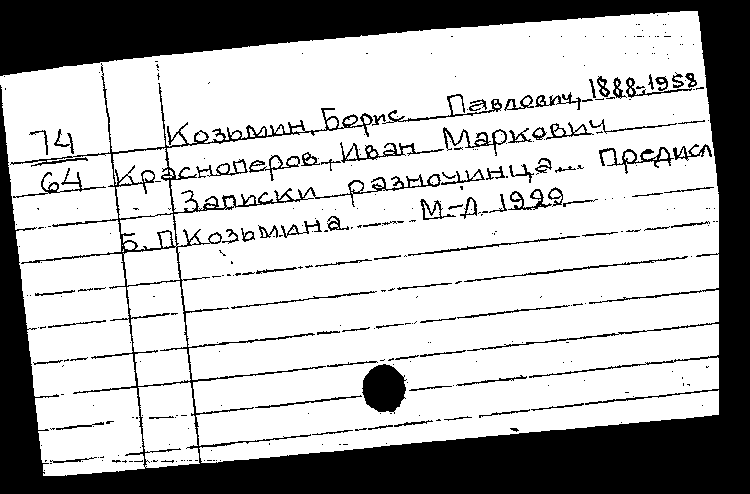 74
64
Козьмин, Борис Павлович, 1888-1958
Красноперов, Иван Маркович
Записки разночинца... предисл
Б. П Козьмина М-Л 1929